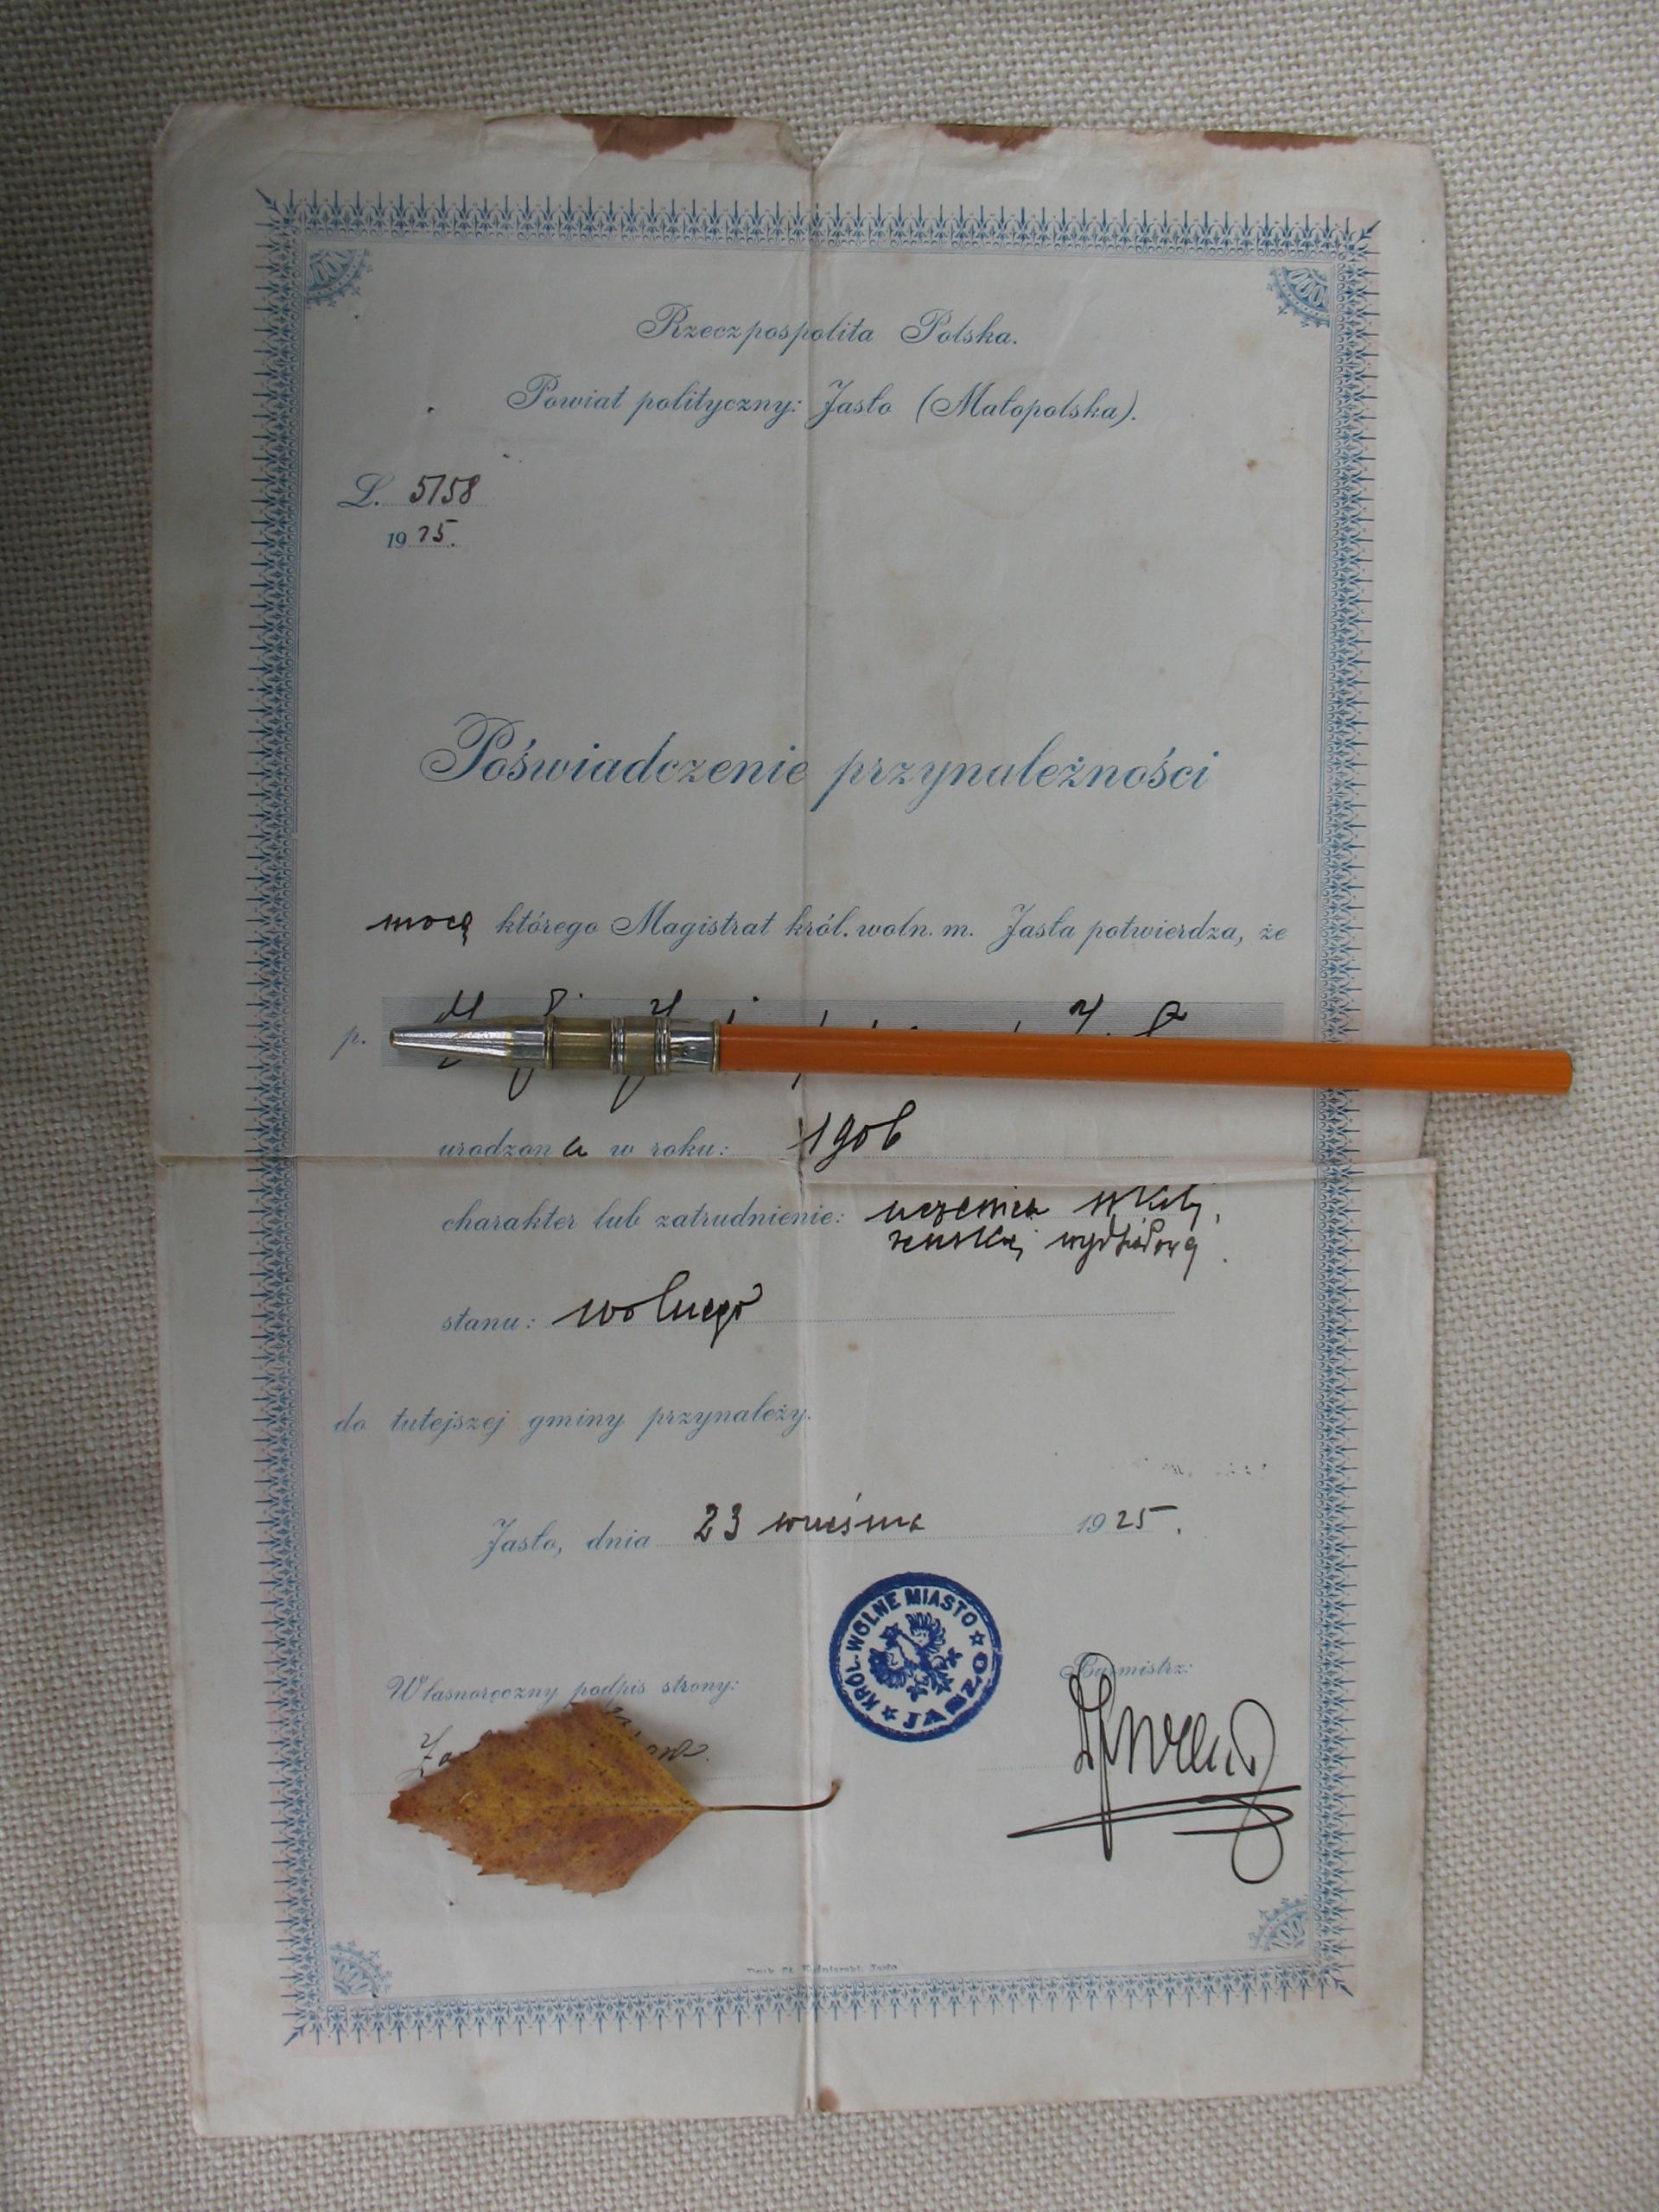 Rzeczpospolita Polska.
Powiat polityczny: Jasło (Małopolska).
L. 5158
1925.
Poświadczenie przynależności
mocą którego Magistrat król. woln. m. Jasła potwierdza, że
p.
urodzona w roku: 1906
charakter lub zatrudnienie: uczenica szkoły
żeńskiej wydziałowej
stanu: wolnego
do tutejszej gminy przynależy.
Jasło, dnia 23 września 1925.
KRÓL. WOLNE MIASTO JASŁO
Własnoręczny podpis strony:
Burmistrz: